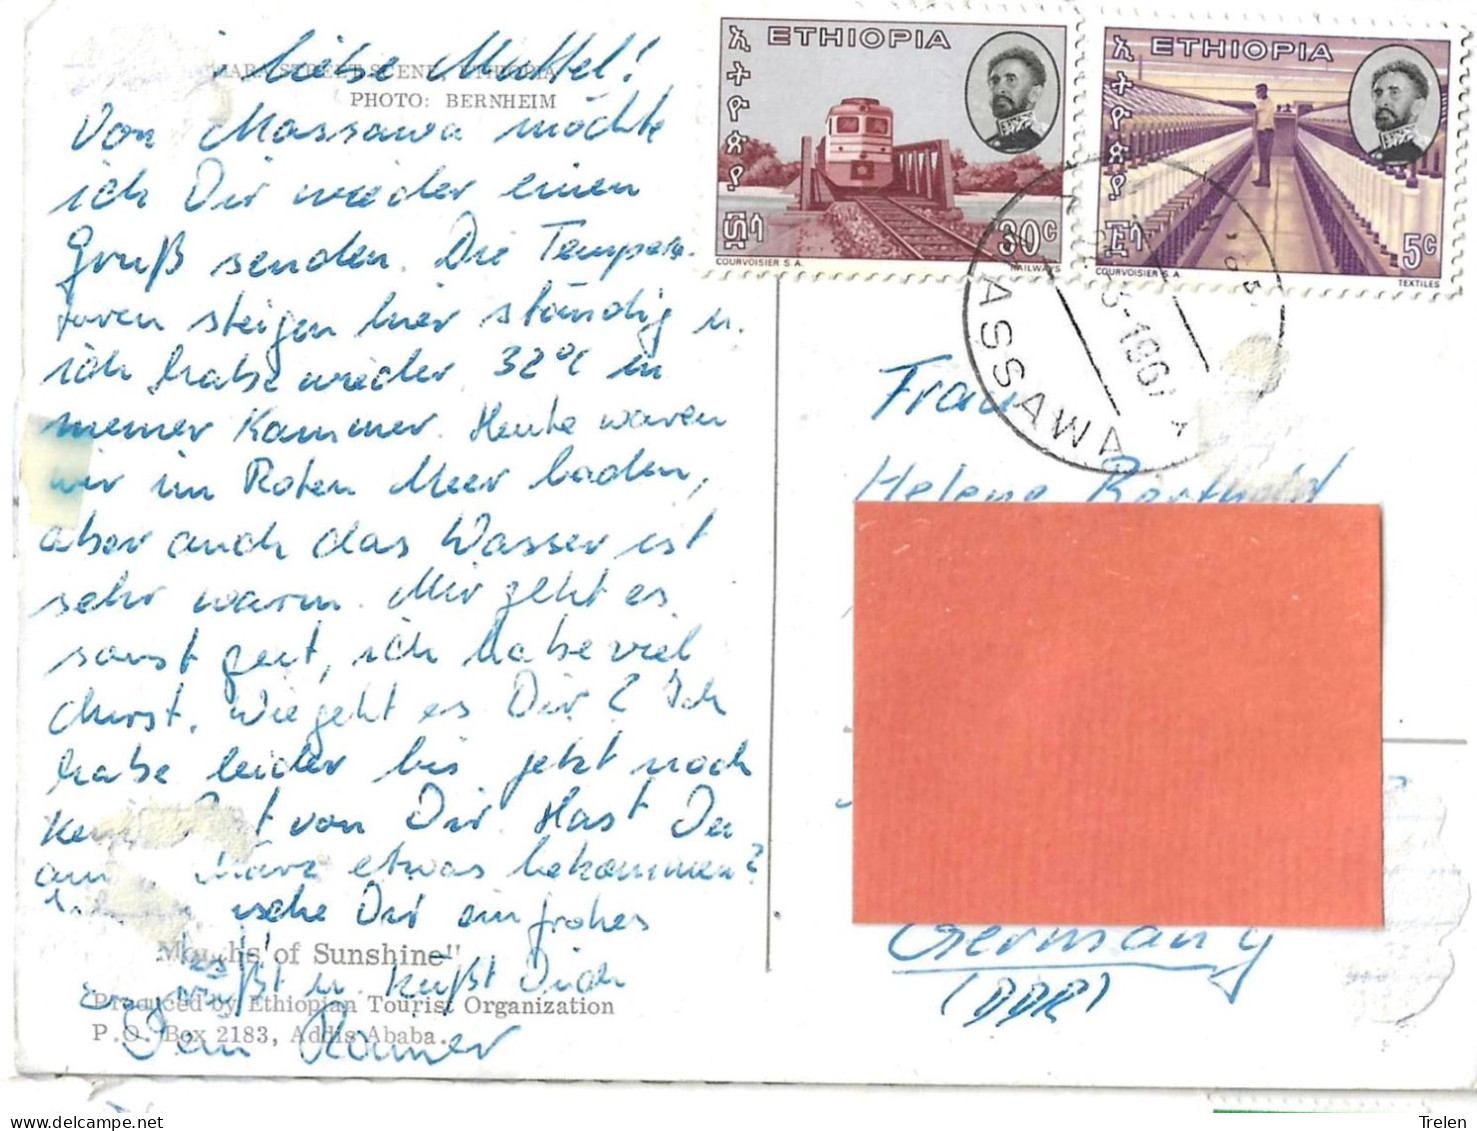 liebe Muttel!
STREET SCENE, ETHIOPIA
PHOTO: BERNHEIM
Von Massawa möchte
ich Dir wieder einen
Gruß senden. Die Tempera-
turen steigen hier ständig u.
ich habe wieder 32°C in
meiner Kammer. Heute waren
wir im Roten Meer baden,
aber auch das Wasser ist
sehr warm. Mir geht es
sonst gut, ich habe viel
durst. Wie geht es Dir? Ich
habe leider bis jetzt noch
von Dir. Hast Du
März etwas bekommen?
Dir ein frohes
of Sunshine"
u. küßt Dich
Produced by Ethiopian Tourist Organization
P.O. Box 2183, Addis Ababa.
Dein Rainer
ኢትዮጵያ
ETHIOPIA
30c
COURVOISIER S.A.
RAILWAYS
ኢትዮጵያ
ETHIOPIA
5c
COURVOISIER S.A.
TEXTILES
ASSAWA
Frau
Helene
Germany
(DDR)
Trelen